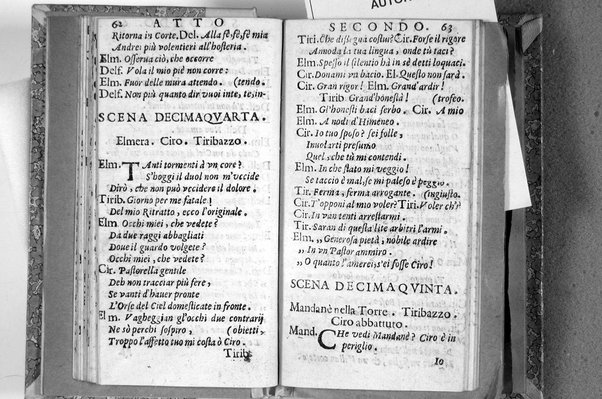 AUTOR
62 ATTO
Ritorna in Corte. Del. Alla fè, fè, mia
Andrei più volentieri all'hosteria.
Elm. Osserua ciò, che occorre
Delf. Vola il mio piè non corre:
Elm. Fuor delle mura attendo. (tendo.
Delf. Non più quanto dir vuoi inte, te, in-
SCENA DECIMAQVARTA.
Elmera. Ciro. Tiribazzo.
Elm. TAnti tormenti à vn core?
S'hoggi il duol non m'vccide
Dirò, che non può vccidere il dolore.
Tirib. Giorno per me fatale!
Del mio Ritratto, ecco l'originale.
Elm. Occhi miei, che vedete?
Da due raggi abbagliati
Doue il guardo volgete?
Occhi miei, che vedete?
Cir. Pastorella gentile
Deh non tracciar più fere,
Se vanti d'hauer pronte
L'Orse del Ciel domesticate in fronte.
Elm. Vagheggian gl'occhi due contrarij
Ne sò perchi sospiro, (obietti,
Troppo l'affetto tuo mi costa ò Ciro.
Tirib.
SECONDO. 63
Tiri. Che disegnà costui? Cir. Forse il rigore
Annoda la tua lingua, onde tù taci?
Elm. Spesso il silentio hà in sè detti loquaci.
Cir. Donami vn bacio. El. Questo non sarà.
Cir. Gran rigor! Elm. Grand'ardir!
Tirib Grand'honestà! (trofeo.
Elm. Gl'honesti baci serbo. Cir. A mio
Elm. A nodi d'Himeneo.
Cir. Io tuo sposo? sei folle,
Inuolarti presumo
Quel, che tù mi contendi.
Elm. In che stato mi veggio!
Se taccio è mal, se mi paleso è peggio.
Tir. Ferma, ferma arrogante. (singiusto.
Cir. T'opponi al mio voler? Tiri. Voler ch'è
Cir. In van tenti arrestarmi.
Tir. Saran di questa lite arbitri l'armi.
Elm. „ Generosa pietà, nobile ardire
„ In vn Pastor ammiro.
„ O quanto l'amerei, s'ei fosse Ciro!
SCENA DECIMAQVINTA.
Mandanè nella Torre. Tiribazzo.
Ciro abbattuto.
Mand. CHe vedi Mandanè? Ciro è in
periglio.
Io